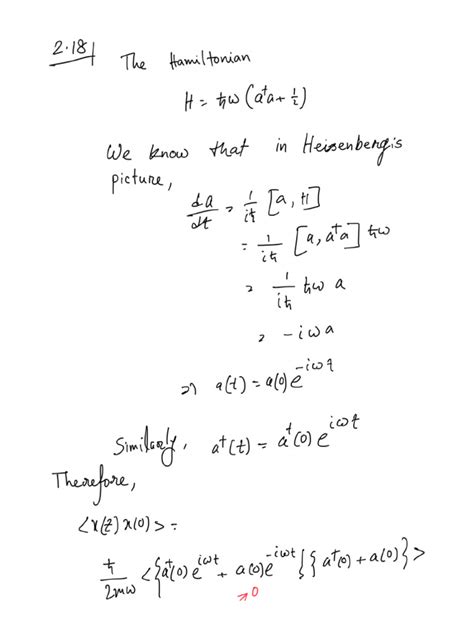 2.18|
The Hamiltonian
H = ħω (a†a + 1/2)
We know that in Heisenberg's
picture,
da/dt = 1/iħ [a, H]
= 1/iħ [a, a†a] ħω
= 1/iħ ħω a
= -iωa
⇒ a(t) = a(0) e^{-iωt}
Similarly, a†(t) = a†(0) e^{iωt}
Therefore,
<x(t) x(0)> =
ħ/2mω <{a†(0) e^{iωt} + a(0) e^{-iωt}} {a†(0) + a(0)}>
→0